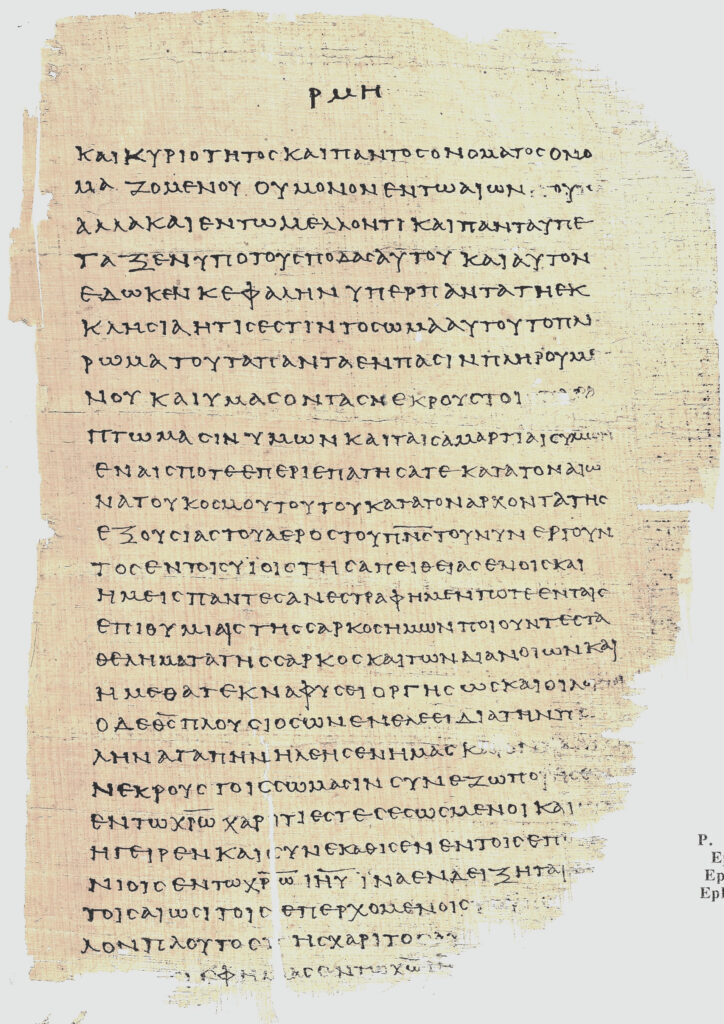 ΡΜΗ
ΚΑΙΚΥΡΙΟΤΗΤΟϹΚΑΙΠΑΝΤΟϹΟΝΟΜΑΤΟϹΟΝΟ
ΜΑΖΟΜΕΝΟΥ ΟΥΜΟΝΟΝΕΝΤΩΑΙΩΝ
ΑΛΛΑΚΑΙΕΝΤΩΜΕΛΛΟΝΤΙΚΑΙΠΑΝΤΑΥΠΕ
ΤΑΞΕΝΥΠΟΤΟΥϹΠΟΔΑϹΑΥΤΟΥ ΚΑΙΑΥΤΟΝ
ΕΔΩΚΕΝΚΕΦΑΛΗΝ ΥΠΕΡΠΑΝΤΑΤΗΕΚ
ΚΛΗϹΙΑΗΤΙϹΕϹΤΙΝΤΟϹΩΜΑΑΥΤΟΥΤΟΠΛ
ΡΩΜΑΤΟΥΤΑΠΑΝΤΑΕΝΠΑϹΙΝΠΛΗΡΟΥΜΕ
ΝΟΥ ΚΑΙΥΜΑϹΟΝΤΑϹΝΕΚΡΟΥϹΤΟΙ
ΠΤΩΜΑϹΙΝΥΜΩΝΚΑΙΤΑΙϹΑΜΑΡΤΙΑΙϹΥΜΩΝ
ΕΝΑΙϹΠΟΤΕΕΠΕΡΙΕΠΑΤΗϹΑΤΕ ΚΑΤΑΤΟΝΑΙΩ
ΝΑΤΟΥΚΟϹΜΟΥΤΟΥΤΟΥΚΑΤΑΤΟΝΑΡΧΟΝΤΑΤΗϹ
ΕΞΟΥϹΙΑϹΤΟΥΑΕΡΟϹΤΟΥΠ̅Ν̅Ϲ̅ΤΟΥΝΥΝ ΕΡΓΟΥΝ
ΤΟϹΕΝΤΟΙϹΥΙΟΙϹΤΗϹΑΠΕΙΘΕΙΑϹΕΝΟΙϹΚΑΙ
ΗΜΕΙϹΠΑΝΤΕϹΑΝΕϹΤΡΑΦΗΜΕΝΠΟΤΕΕΝΤΑΙϹ
ΕΠΙΘΥΜΙΑΙϹΤΗϹϹΑΡΚΟϹΗΜΩΝΠΟΙΟΥΝΤΕϹΤΑ
ΘΕΛΗΜΑΤΑΤΗϹϹΑΡΚΟϹΚΑΙΤΩΝΔΙΑΝΟΙΩΝΚΑΙ
ΗΜΕΘΑΤΕΚΝΑΦΥϹΕΙΟΡΓΗϹΩϹΚΑΙΟΙΛΟΙΠΟΙ
ΟΔΕΘ̅Ϲ̅ΠΛΟΥϹΙΟϹΩΝΕΝΕΛΕΕΙΔΙΑΤΗΝΠ
ΛΗΝΑΓΑΠΗΝΗΛΕΗϹΕΝΗΜΑϹΚ
ΝΕΚΡΟΥϹΤΟΙϹϹΩΜΑϹΙΝϹΥΝΕΖΩΠΟΙ
ΕΝΤΩΧ̅Ρ̅Ω̅ ΧΑΡΙΤΙΕϹΤΕϹΕϹΩϹΜΕΝΟΙΚΑΙ
ΗΓΕΙΡΕΝΚΑΙϹΥΝΕΚΑΘΙϹΕΝΕΝΤΟΙϹΕΠ
ΝΙΟΙϹΕΝΤΩΧ̅Ρ̅Ω̅ Ι̅Η̅Υ̅ ΙΝΑΕΝΔΕΙΞΗΤΑΙ
ΤΟΙϹΑΙΩϹΙΤΟΙϹΕΠΕΡΧΟΜΕΝΟΙϹ
ΛΟΝΠΛΟΥΤΟϹ ΗϹΧΑΡΙΤΟ
P.